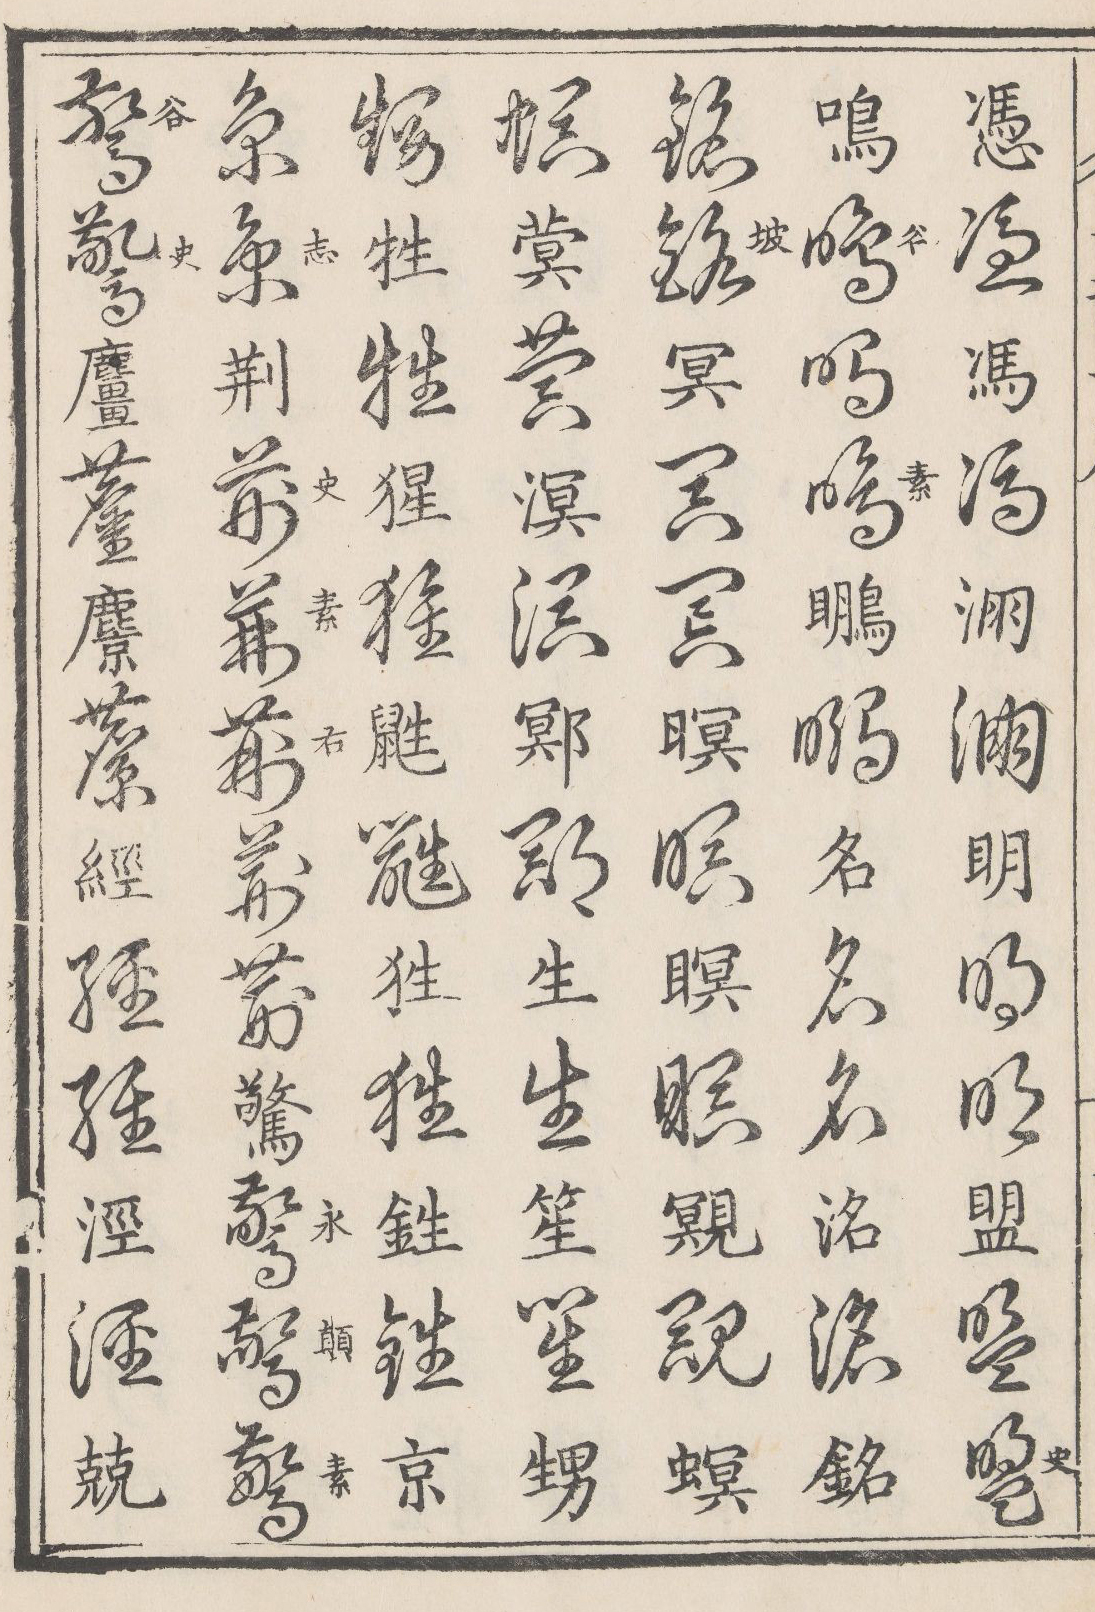 憑憑馮馮淜淜明明明盟盟盟史
鳴鳴谷鳴鳴素鵬鵬名名名洺洺銘
銘銘坡冥冥冥暝暝瞑瞑覭覭螟
螟蓂蓂溟溟鄍鄍生生笙笙甥
甥牲牲猩猩鼪鼪狌狌鉎鉎京
京京志荆荆史荆素荆右荆荆驚驚永驚顛驚素
驚谷驚史麠麠麖麖經經經涇涇兢